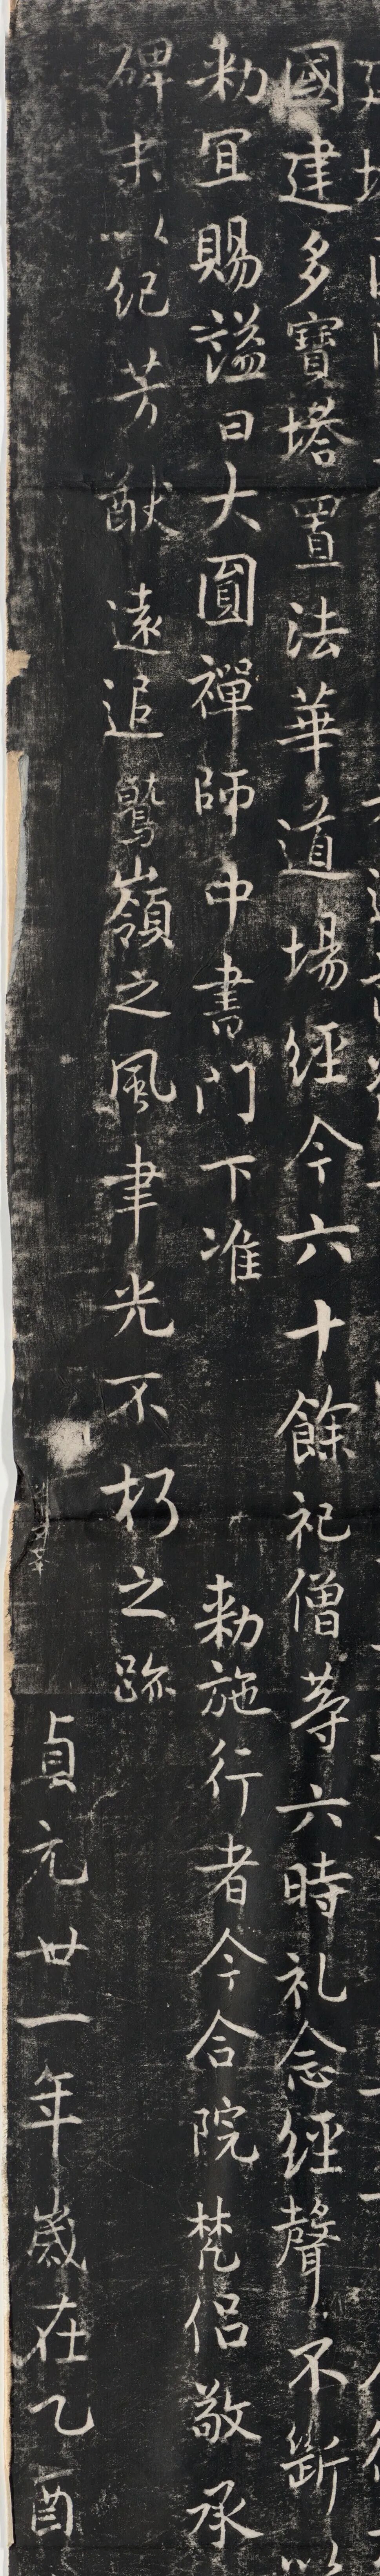 國建多寶塔置法華道場經今六十餘祀僧等六時礼念經聲不斷以
勑宜賜謚曰大圓禪師中書門下准 勑施行者今合院梵侶敬承
碑末以紀芳猷遠追鷲嶺之風聿光不朽之跡
貞元廿一年歲在乙酉